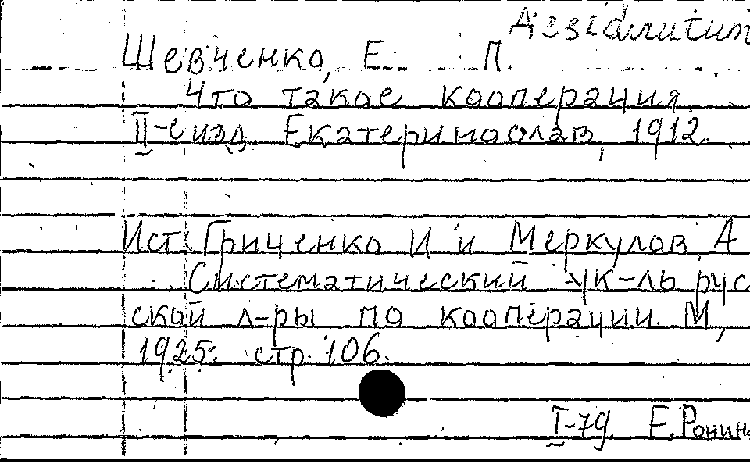 Desideratum
Шевченко, Е. П.
Что такое кооперация.
II-е изд. Екатеринослав, 1912.
Ист: Гриченко И и Меркулов А
Систематический ук-ль рус
ской л-ры по кооперации. М,
1925. стр. 106.
I-79. Е. Ронин